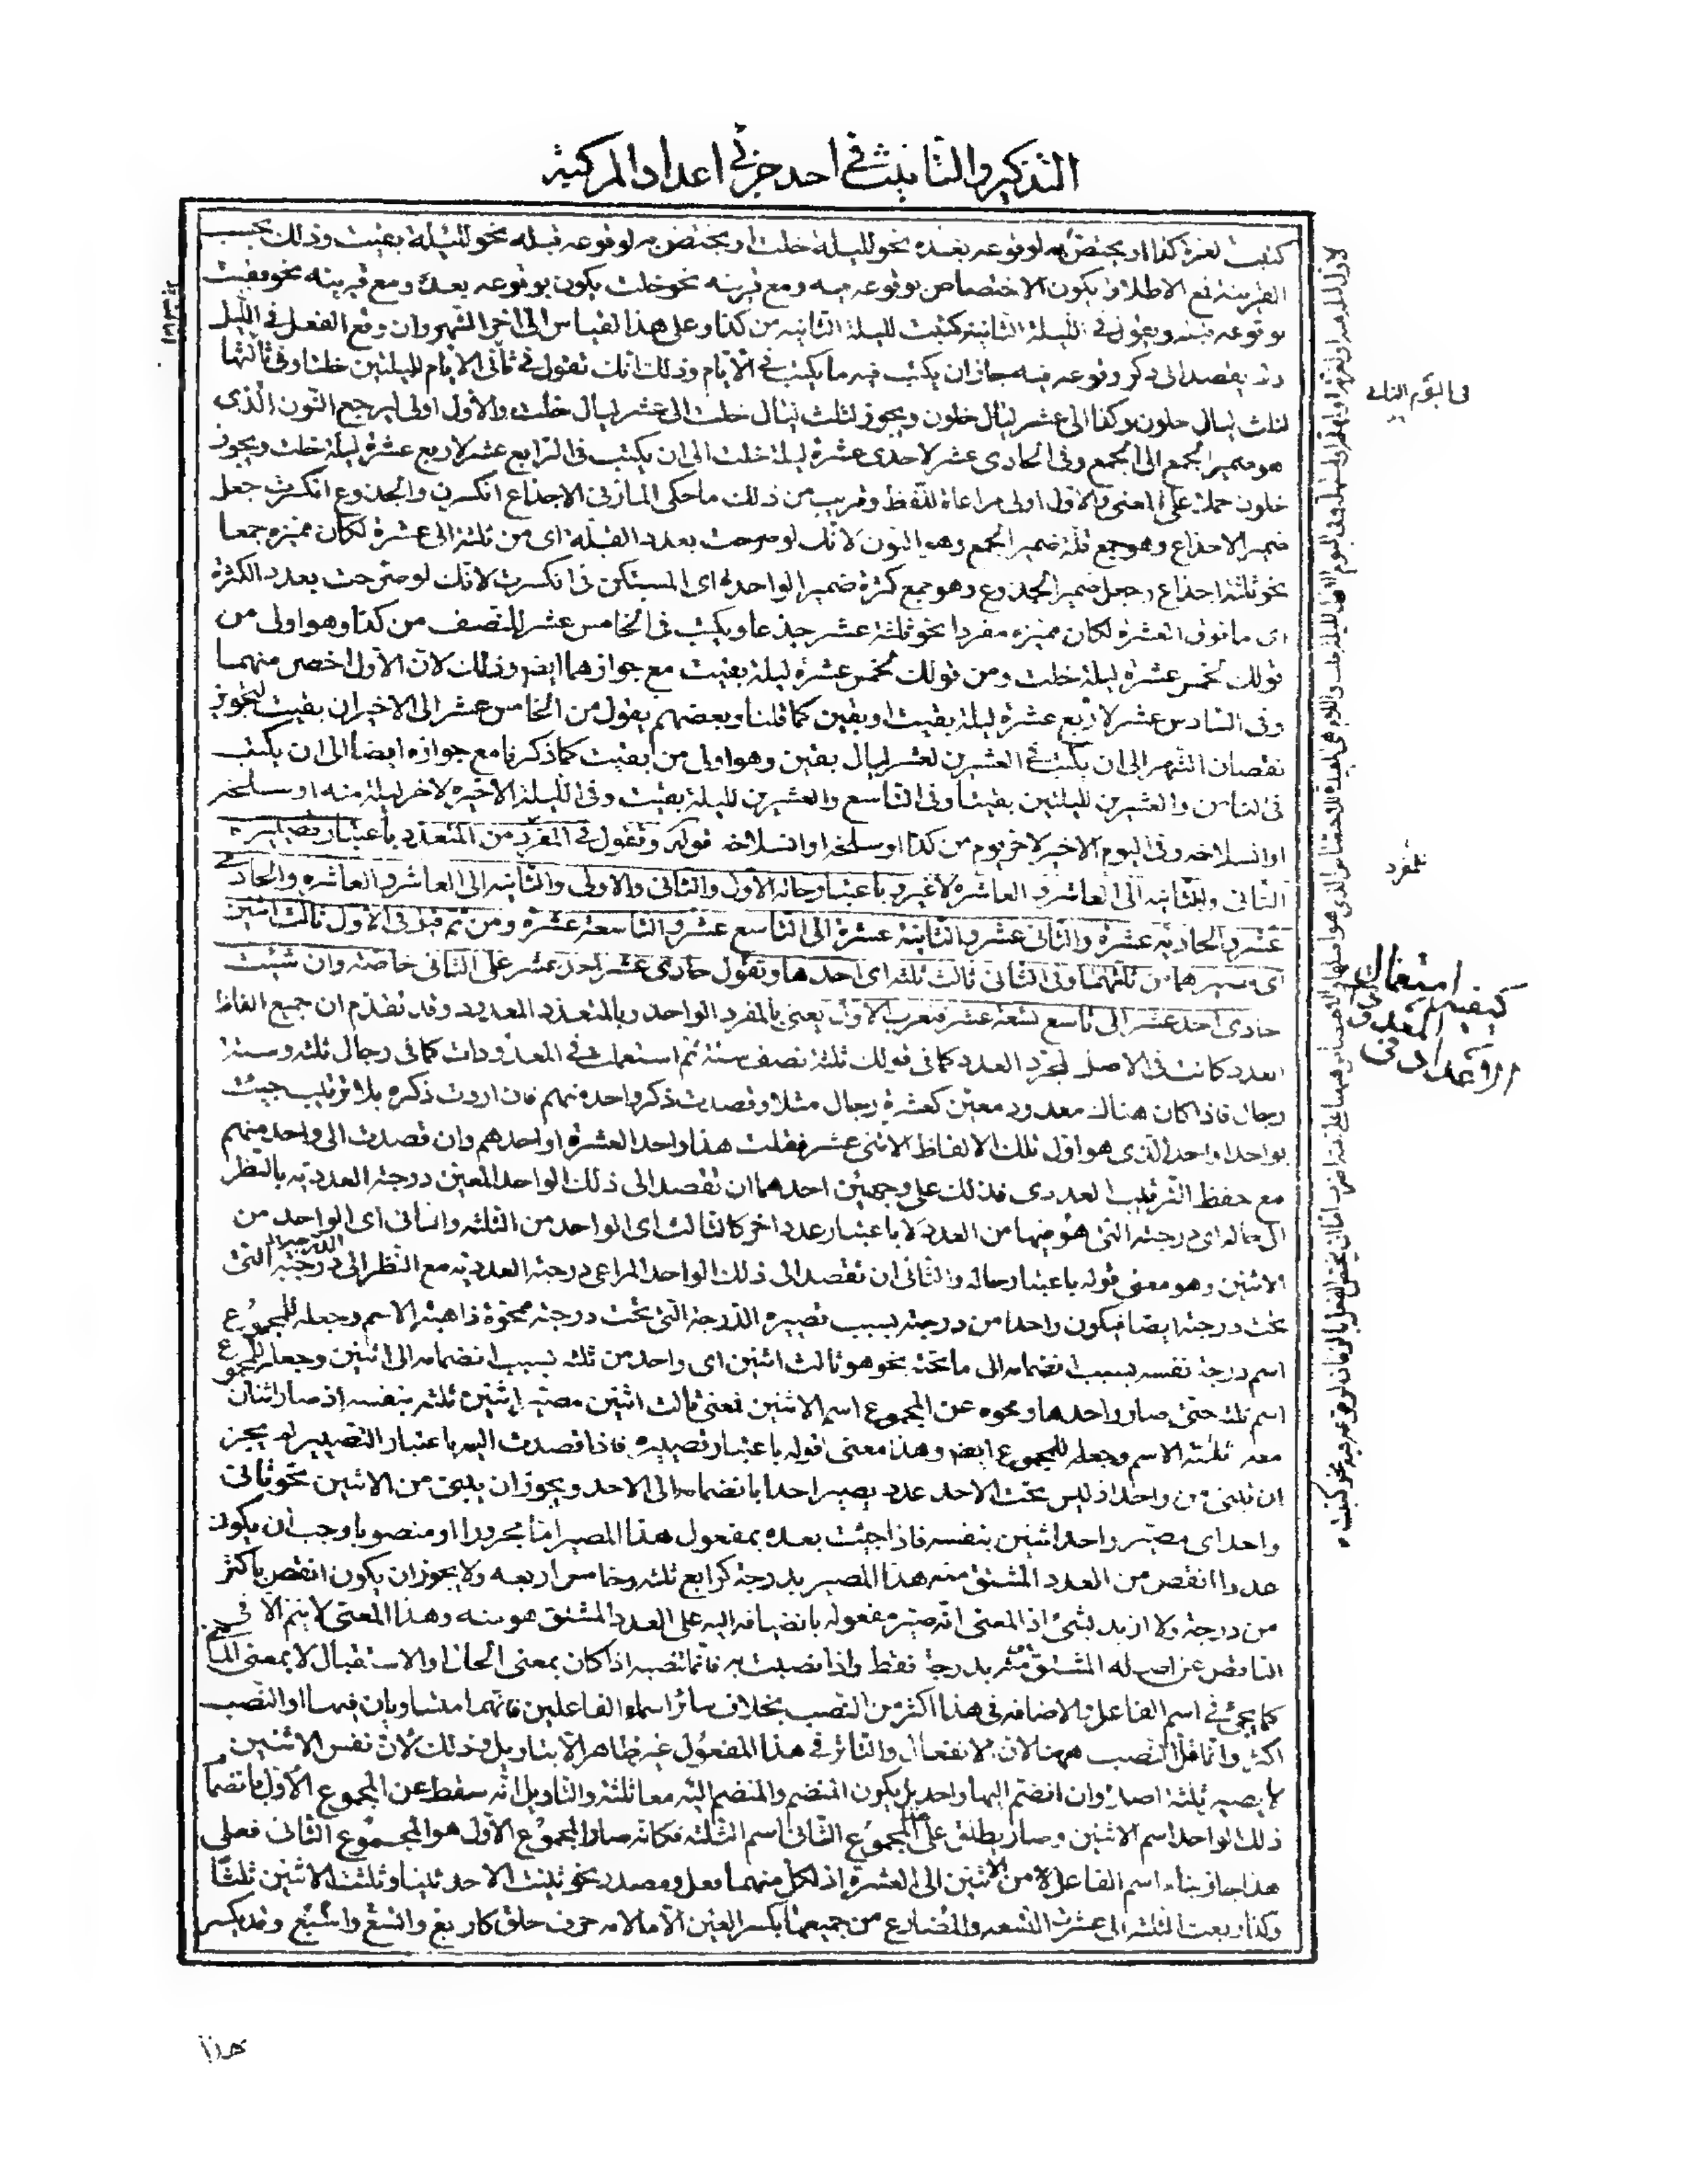 التذكير والتانيث فى احد جزئى اعداد المركبة
كتبت لغرة كذا او يختص به لوقوعه بعده نحو لليلة خلت او يختص به لوقوعه قبله نحو لليلة بقيت وذلك بحسب
القرينة فمع الاطلاق يكون الاختصاص بوقوعه فيه ومع قرينه نحو خلت يكون بوقوعه بعده ومع قرينه نحو بقيت
بوقوعه قبله ويقول فى الليلة الثانية كتبت لليلة الثانية من كذا وعلى هذا القياس الى اخر الشهر وان وقع الفعل فى الليل
يقصد الى ذكر وقوعه فيه جاز ان يكتب فيه ما يكتب فى الايام وذلك انك تقول فى ثانى الايام لليلتين خلتا وفى ثالثها
لثلث ليال خلون وكذا الى عشر ليال خلون ويجوز لثلث ليال خلت الى عشر ليال خلت والاول اولى ليرجع النون الذى
هو ضمير الجمع الى الجمع وفى الحادى عشر لاحدى عشرة ليلة خلت الى ان يكتب فى الرابع عشر لاربع عشرة ليلة خلت ويجوز
خلون حملا على المعنى والاول اولى مراعاة للفظ وقريب من ذلك ما حكى المازنى الاجذاع انكسرن والجذوع انكسرت جعل
ضمير الاجذاع وهو جمع قلة ضمير الجمع وهو النون لانك لو صرحت بعدد القلة اى من ثلثة الى عشرة لكان مميزه جمعا
نحو ثلثة اجذاع وجعل ضمير الجذوع وهو جمع كثرة ضمير الواحدة اى المستكن فى انكسرت لانك لو صرحت بعدد الكثرة
اى ما فوق العشرة لكان مميزه مفردا نحو ثلثة عشر جذعا ويكتب فى الخامس عشر للنصف من كذا وهو اولى من
قولك لخمس عشرة ليلة خلت ومن قولك لخمس عشرة ليلة بقيت مع جوازهما ايضا وذلك لان الاول اخصر منهما
وفى السادس عشر لاربع عشرة ليلة بقيت او بقين كما قلنا وبعضهم يقول من الخامس عشر الى الاخير ان بقيت لتجويز
نقصان الشهر الى ان يكتب فى العشرين لعشر ليال بقين وهو اولى من بقيت كما ذكرنا مع جوازه ايضا الى ان يكتب
فى الثامن والعشرين لليلتين بقيتا وفى التاسع والعشرين لليلة بقيت وفى الليلة الاخيرة لاخر ليلة منه او سلخه
او انسلاخه وفى اليوم الاخير لاخر يوم من كذا او سلخه او انسلاخه قوله وتقول فى المفرد من المتعدد باعتبار تصييره
الثانى والثانيه الى العاشر والعاشرة لا غير وباعتبار حاله الاول والثانى والاولى والثانيه الى العاشر والعاشره والحادى
عشر والحاديه عشرة والثانى عشر والثانية عشرة الى التاسع عشر والتاسعة عشرة ومن ثم قيل فى الاول ثالث اثنين
اى مصيرهما من ثلثتهما وفى الثانى ثالث ثلثه اى احدها وتقول حادى عشر احد عشر على الثانى خاصة وان شئت
حادى احد عشر الى تاسع تسعة عشر فتعرب الاول يعنى بالمفرد الواحد وبالمتعدد المعدود وقد تقدم ان جميع الفاظ
العدد كانت فى الاصل لمجرد العدد كما فى قولك ثلثة نصف ستة ثم استعملت فى المعدودات كما فى رجال ثلثه وستة
رجال فاذا كان هناك معدود معين كعشرة رجال مثلا وقصدت ذكر واحد منهم فان اردت ذكره بلا ترتيب جيئت
بواحد او احد الذى هو اول تلك الالفاظ الاثنى عشر فقلت هذا واحد العشرة او احدهم وان قصدت الى واحد منهم
مع حفظ الترتيب العددى فذلك على وجهين احدهما ان تقصد الى ذلك الواحد المعين درجته العددية بالنظر
الى حاله اى درجته التى هو فيها من العدد لا باعتبار عدد اخر كالثالث اى الواحد من الثلثه والثانى اى الواحد من
الاثنين وهو معنى قوله باعتبار حاله والثانى ان تقصد الى ذلك الواحد المراعى درجته العددية مع النظر الى الدرجة التى
تحت درجته ايضا فيكون واحدا من درجته بسبب تصييره الدرجة التى تحت درجته ممحوة ذاهبة الاسم وجعله للمجموع
اسم درجة نفسه بسبب انضمامه الى ما تحته نحو هو ثالث اثنين اى واحد من ثلثه بسبب انضمامه الى اثنين وجعله للمجموع
اسم ثلثه حتى صار واحدها ومحوه عن المجموع اسم الاثنين فمعنى ثالث اثنين مصير اثنين ثلثه بنفسه اذ صار اثنان
معه ثلثة الاسم وجعله للمجموع ايضا وهذا معنى قوله باعتبار تصييره فاذا قصدت اليه باعتبار التصيير لم يجز
ان تبنى من واحد اذ ليس تحت الاحد عدد يصير احدا بانضمامه الى الاحد ويجوز ان يبنى من الاثنين نحو ثانى
واحد اى مصير واحد اثنين بنفسه فاذا جيئت بعده بمفعول هذا المصير اما مجرورا او منصوبا وجب ان يكون
عددا انقص من العدد المشتق منه هذا المصير بدرجة كرابع ثلثه وخامس اربعه ولا يجوز ان يكون انقص باكثر
من درجة ولا ازيد بشئ اذ المعنى انه صير مفعوله بانضيافه اليه على العدد المشتق هو منه وهذا المعنى لا يتم الا فى
الناقص عن اصله المشتق منه بدرجة فقط واذا نصبت به فانما تنصبه اذا كان بمعنى الحال او الاستقبال لا بمعنى الماضى
كما يجئ فى اسم الفاعل والاضافه فى هذا اكثر من النصب بخلاف سائر اسماء الفاعلين فانهما متساويان فيها او النصب
اكثر وانما قل النصب ههنا لان الانفعال والتاثر فى هذا المفعول غير ظاهر الا بتاويل وذلك لان نفس الاثنين
لا يصير ثلثة اصلا وان انضم اليها واحد بل يكون المنضم والمنضم اليه معا ثلثة والتاويل انه سقط عن المجموع الاول بانضمام
ذلك الواحد اسم الاثنين وصار يطلق على المجموع الثانى اسم الثلثه فكانه صار المجموع الاول هو المجموع الثانى فعلى
هذا جاز بناء اسم الفاعل من الاثنين الى العشرة اذ لكل منهما فعل ومصدر نحو ثنيت الاحد ثنيا وثلثت الاثنين ثلثا
وكذا ربعت الثلثه الى عشرت التسعه والمضارع من جميعها بكسر العين الا ما لامه حرف حلق كاربع واتسع واسبع وقد يكسر
فى اليوم الثانى
للمفرد
كيفية استعمال
المفرد من
الاعداد فى
هذا